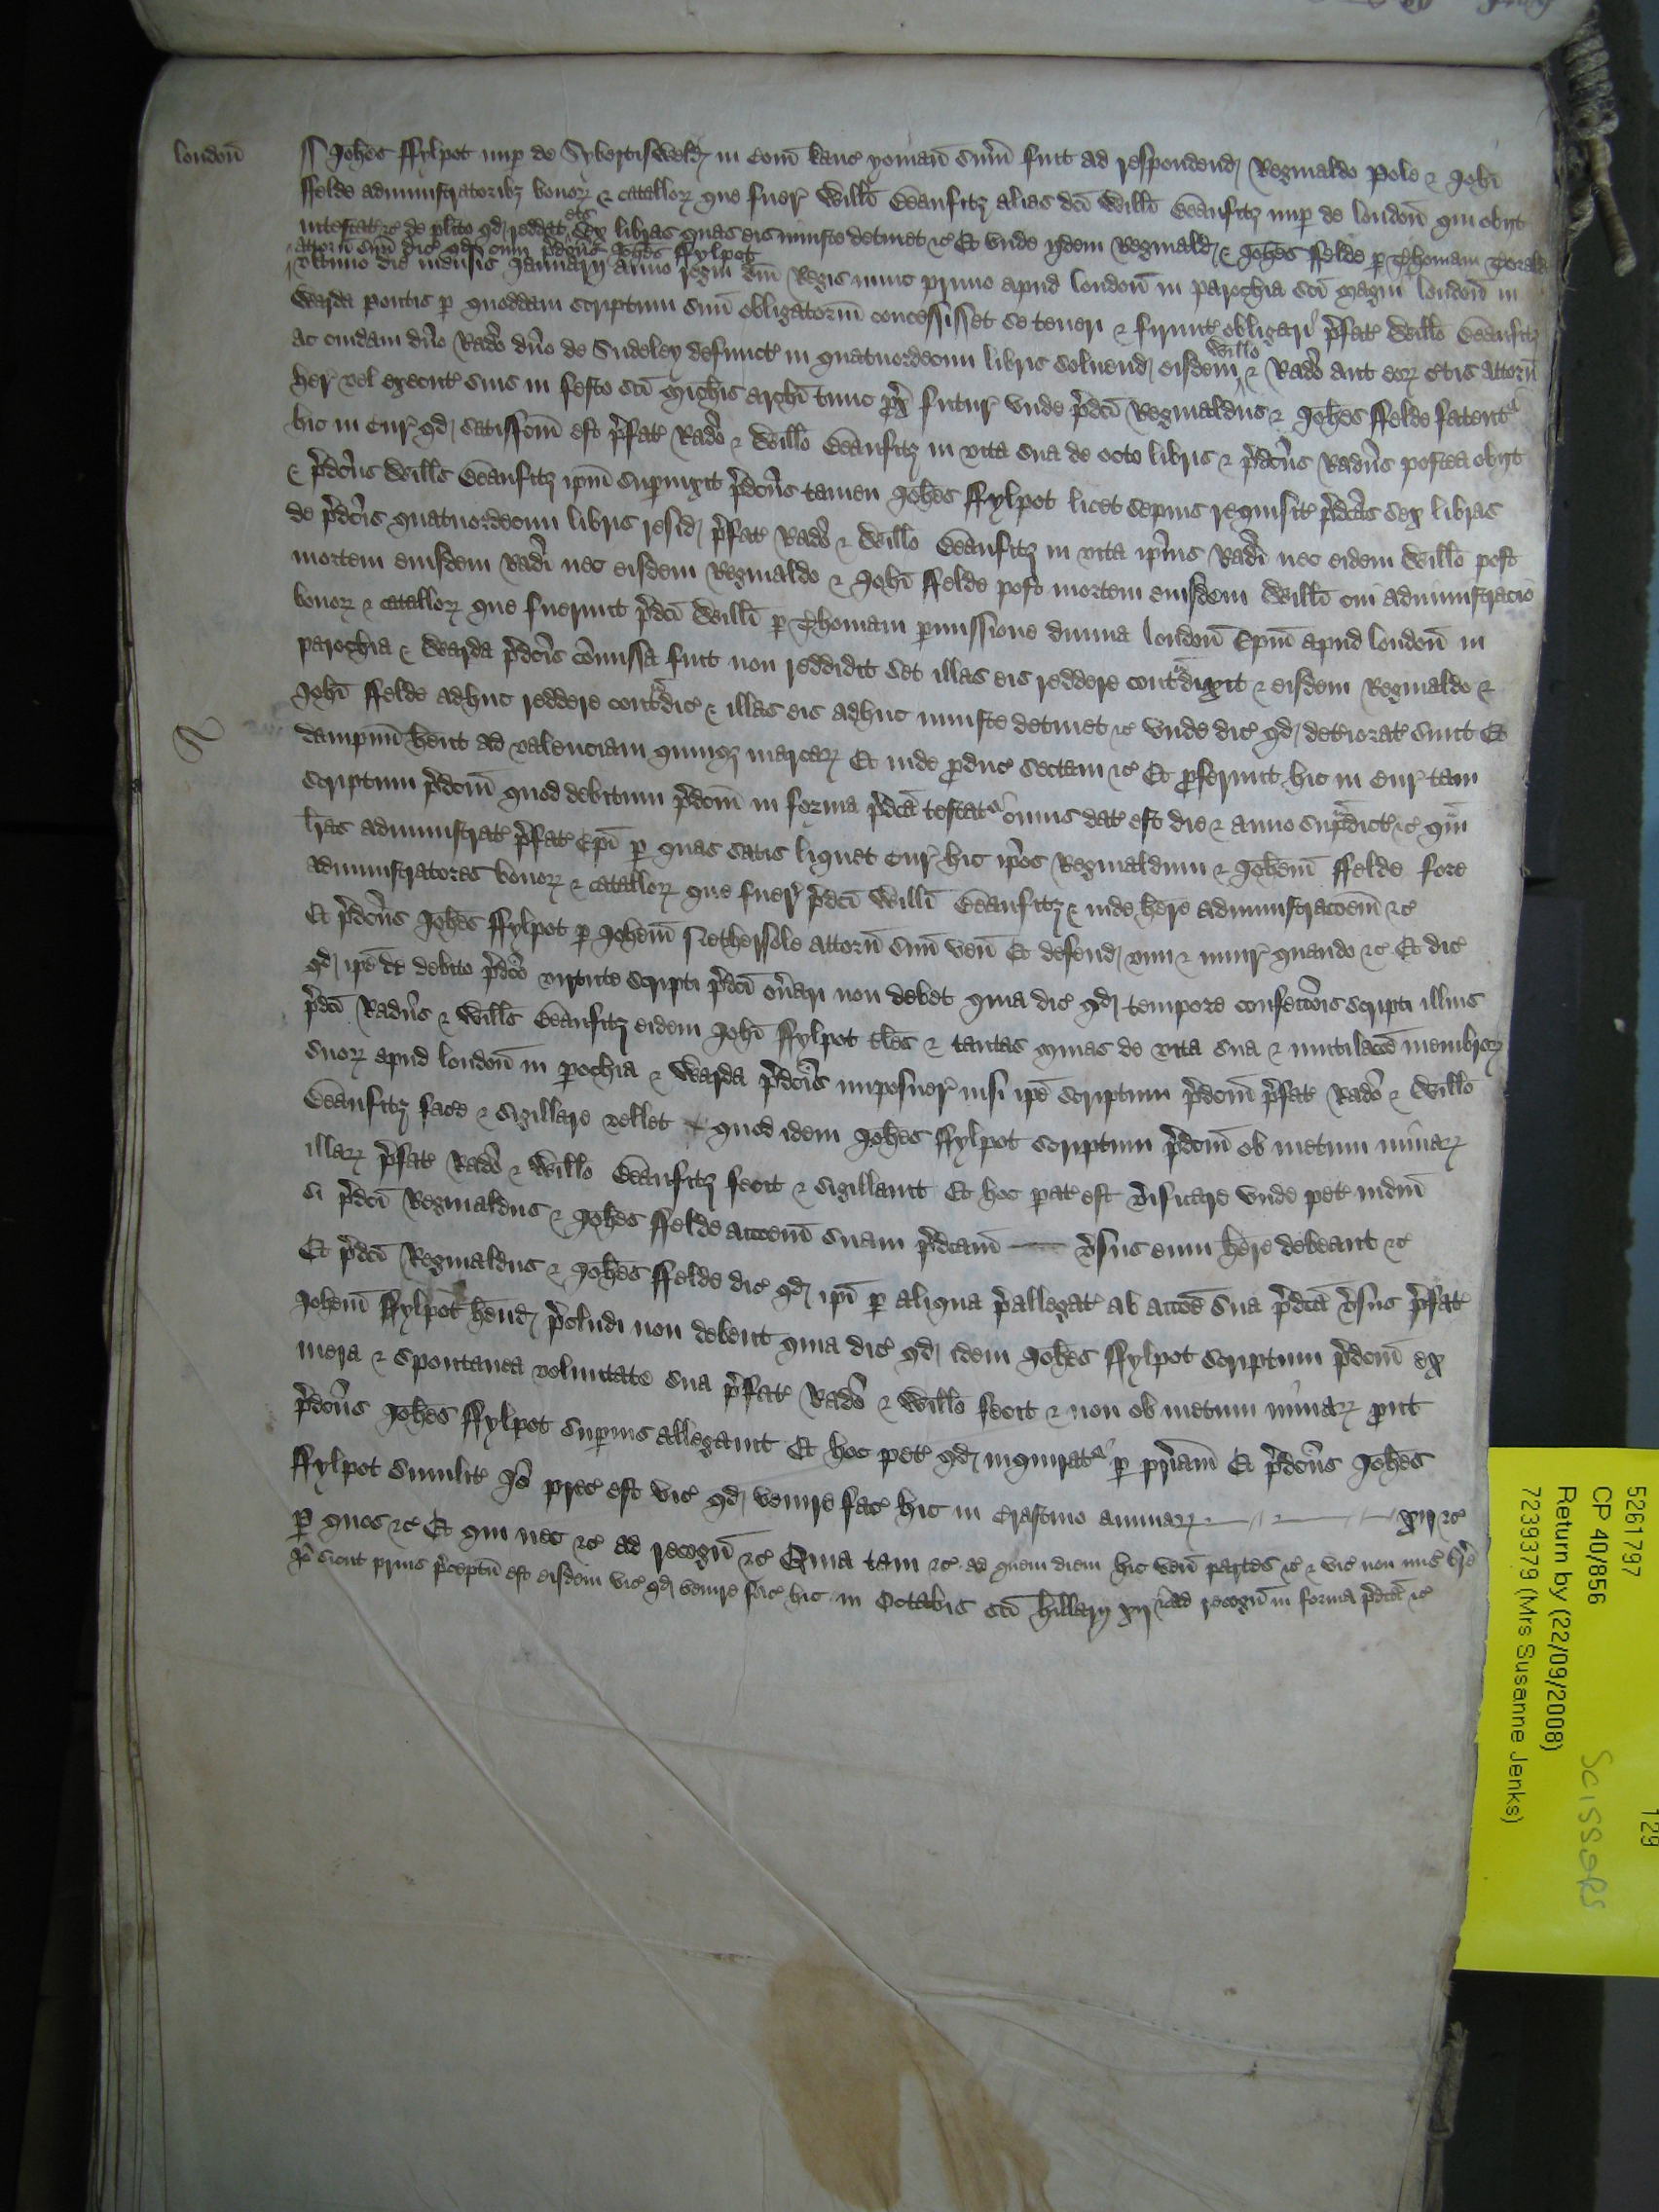 londoñ
Johēs ffylpot nup de Sybertisweld in Com̄ kanc yoman sum̄ fuit ad respondend Reginaldo Pole & Joh̄i
ffelde administratoribz bonoꝝ & catalloꝝ que fuer̄ Willi Beaufitz alias dc̄i Willi Beaufitz nup de londoñ qui obijt
intestat &c de plito qd reddat eis sex libras quas eis iniuste detinet &c Et unde ijdem Reginald & Johes ffelde p Thomam
attorn̄ suū dic̄ qd cum p̄dc̄us Johes ffylpot
ultimo die mensis Januarij anno regni dn̄i Regis nunc primo apud londoñ in parochia sc̄i Magni londoñ in
Warda pontis p quoddam scriptum suū obligatoriū concessisset se teneri & firmit̄ obligari p̄fat̄ Willo Beaufitz
ac cuidam dn̄o Rad̄o dn̄o de Sudeley defunct̄ in quatuordecim libris solvend eisdem Willo & Rad̄o aut eoꝝ c̄tis attorn̄
her̄ vel execut̄ suis in festo sc̄i Mich̄is arch̄i tunc px̄ futur̄ unde p̄dc̄i Reginaldus & Johes ffelde fatent̄
hic in Cur̄ qd satisfc̄m est p̄fat̄ Rad̄o & Willo Beaufitz in vita sua de octo libris & p̄dc̄us Rad̄us postea obijt
& p̄dc̄us Will̄s Beaufitz ip̄m supvixit p̄dc̄us tamen Johes ffylpot licet sepius requisit̄ p̄dc̄as sex libras
de p̄dc̄is quatuordecim libris resid p̄fat̄ Rad̄o & Willo Beaufitz in vita ip̄ius Rad̄i nec eidem Willo post
mortem eiusdem Rad̄i nec eisdem Reginaldo & Joh̄i ffelde post mortem eiusdem Willi cui administracio
bonoꝝ & catalloꝝ que fuerunt p̄dc̄i Willi p Thomam pmissione divina londoñ Epm̄ apud londoñ in
parochia & Warda p̄dc̄is cōmissa fuit non reddidit set illas eis reddere cont̄dixit & eisdem Reginaldo &
Joh̄i ffelde adhuc reddere cont̄dic̄ & illas eis adhuc iniuste detinet &c unde dic̄ qd det̄iorat̄ sunt Et
dampnū hent ad valenciam quinqz marcaꝝ Et inde pduc̄ sectam &c Et pferunt hic in Cur̄ tam
scriptum p̄dc̄m quod debitum p̄dc̄m in forma p̄dc̄a testat̄ cuius dat̄ est die & anno sup̄dict̄ &c qm̄
lr̄as administrat̄ p̄fat̄ Ep̄i p quas satis liquet Cur̄ hic ip̄os Reginaldum & Johem̄ ffelde fore
administratores bonoꝝ & catalloꝝ que fuer̄ p̄dc̄i Willi Beaufitz & inde her̄e administracōem̄ &c
Et p̄dc̄us Johes ffylpot p Johem̄ Nethersole attorn̄ suū ven̄ Et defend vim & iniur̄ quando &c Et dic̄
qd ip̄e de debito p̄dc̄o virtute scripti p̄dc̄i on̄ari non debet quia dic̄ qd tempore confecc̄ois scripti illius
p̄dc̄i Rad̄us & Will̄s Beaufitz eidem Joh̄i ffylpot tales & tantas minas de vita sua & mutilacōe membroꝝ
suoꝝ apud londoñ in pochia & Warda p̄dc̄is imposuer̄ nisi ip̄e scriptum p̄dc̄m p̄fat̄ Rad̄o & Willo
Beaufitz facē & sigillare vellet quod idem Johes ffylpot scriptum p̄dc̄m ob metum minaꝝ
illaꝝ p̄fat̄ Rad̄o & Willo Beaufitz fecit & sigillavit Et hoc parat̄ est v̄ificare unde pet̄ iudm̄
si p̄dc̄i Reginaldus & Johes ffelde accōem̄ suam p̄dc̄am̄ — v̄sus eum her̄e debeant &c
Et p̄dc̄i Reginaldus & Johes ffelde dic̄ qd ip̄i p aliqua p̄allegat̄ ab accōe sua p̄dc̄a v̄sus p̄fat̄
Johem̄ ffylpot hend p̄cludi non debent quia dic̄ qd idem Johes ffylpot scriptum p̄dc̄m ex
mera & spontanea voluntate sua p̄fat̄ Rad̄o & Willo fecit & non ob metum minaꝝ put
p̄dc̄us Johes ffylpot supius allegavit Et hoc pet̄ qd inquirat̄ p pr̄iam̄ Et p̄dc̄us Johes
ffylpot similit̄ Jo prec̄ est vic̄ qd venire fac̄ hic in Crastino animaꝝ — xij &c
p quos &c Et qui nec &c ad recogn̄ &c Quia tam &c ad quem diem hic ven̄ partes &c & vic̄ non mis̄ br̄e
Jo sicut prius p̄ceptū est eisdem vic̄ qd venire fac̄ hic in Octabis sc̄i hillarij xij &c ad recogn̄ in forma p̄dc̄a &c
5261797
129
CP 40/856
Return by (22/09/2008)
7239379 (Mrs Susanne Jenks)
Scissors